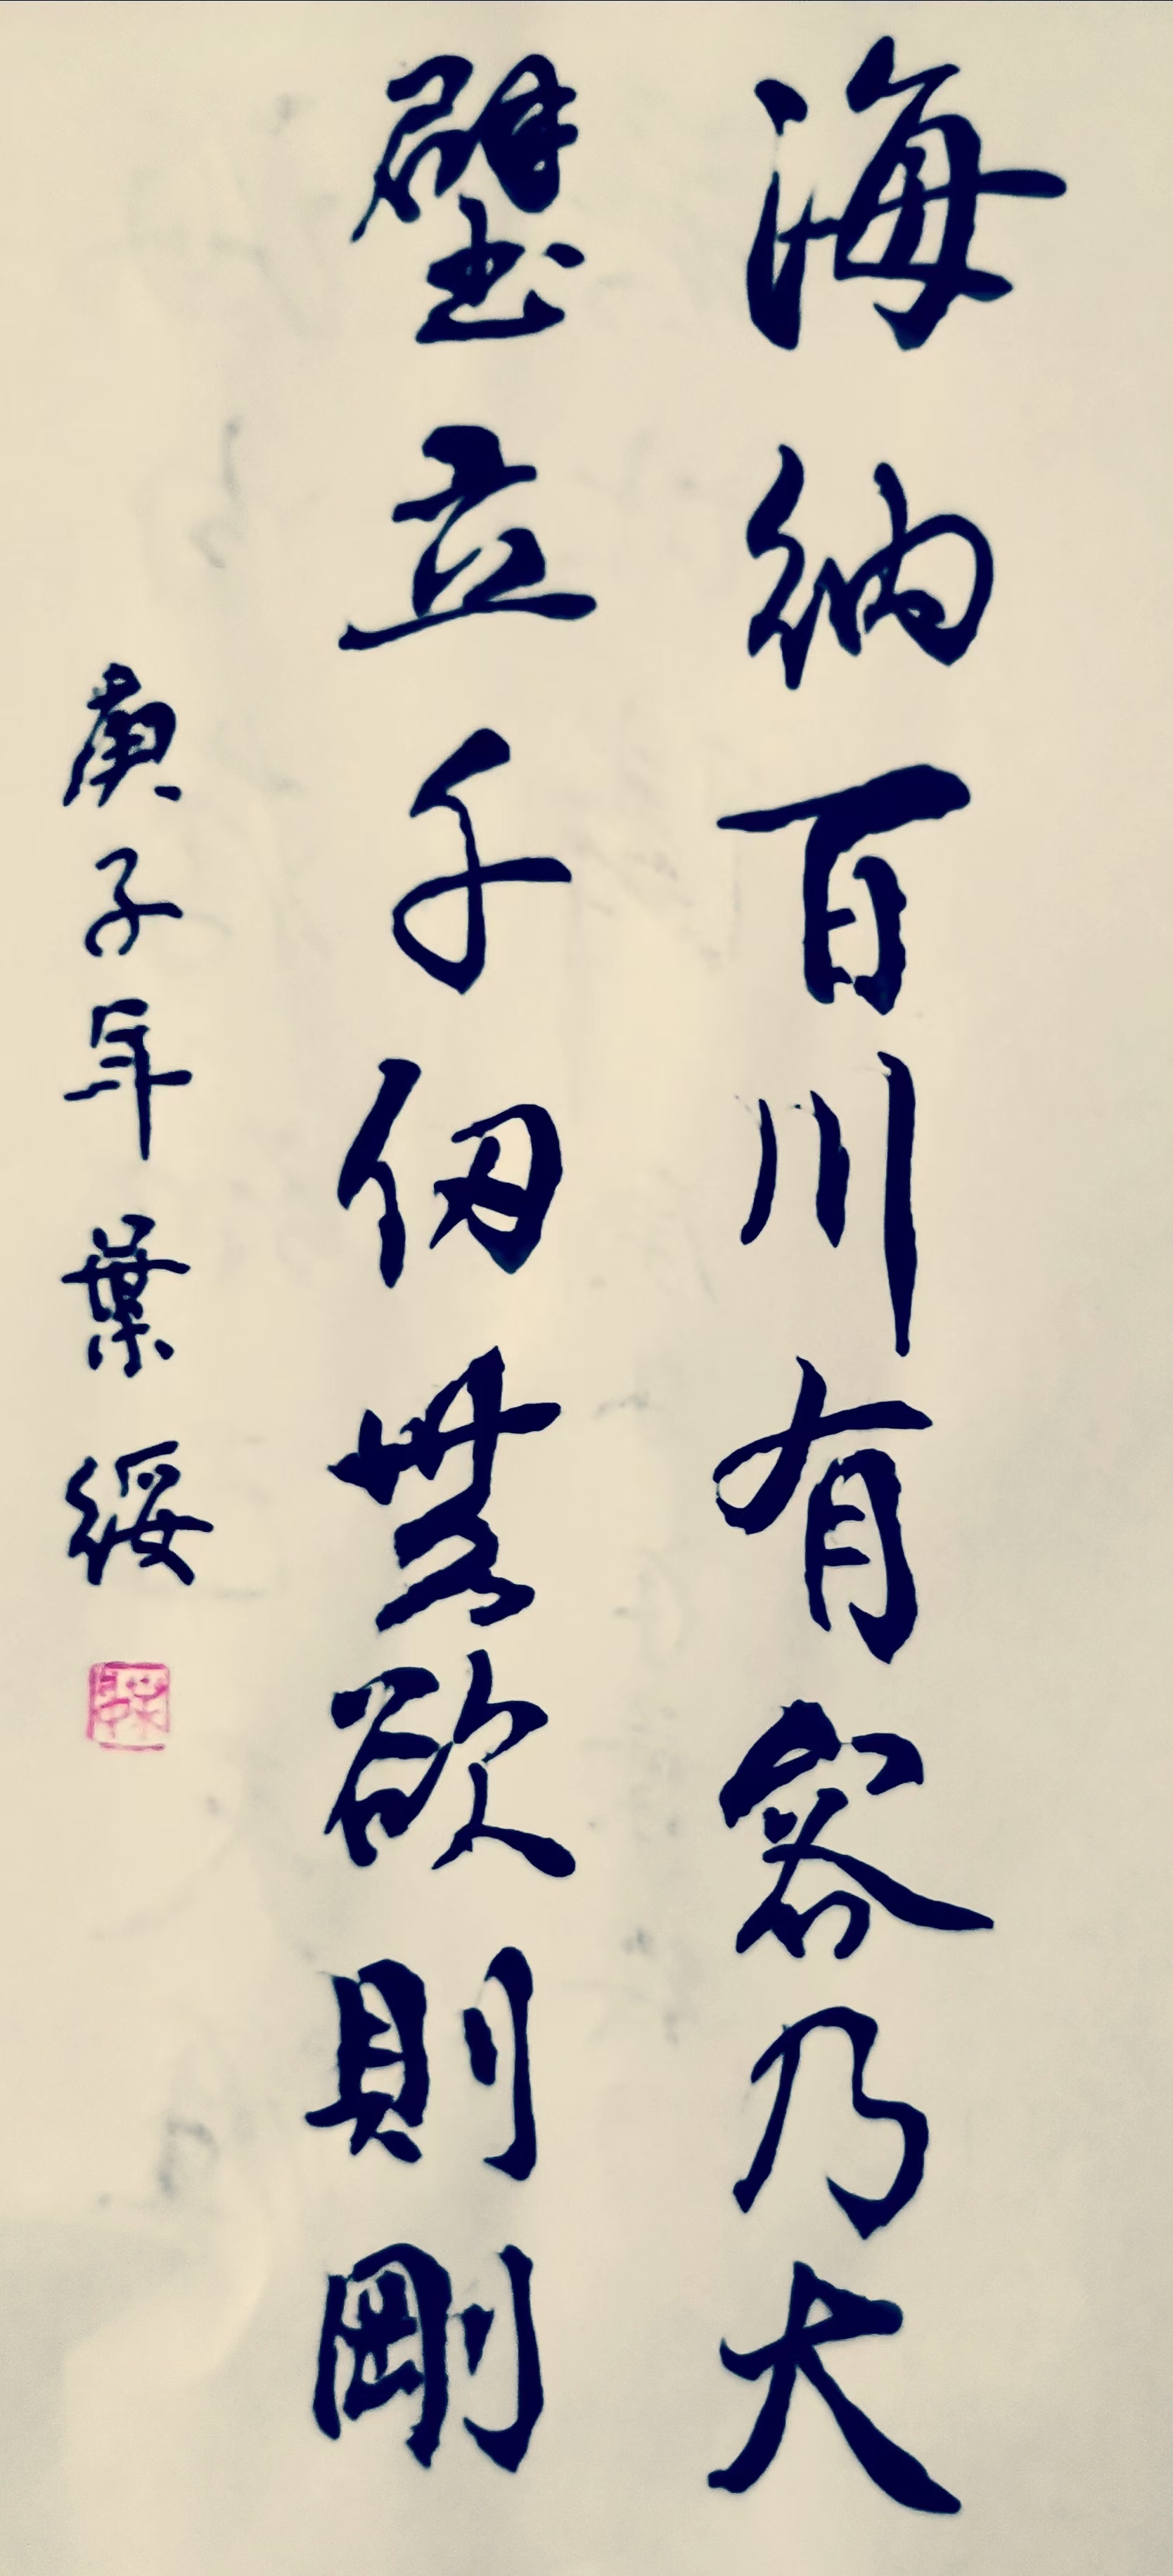 海納百川有容乃大
壁立千仞無欲則剛
庚子年葉綏